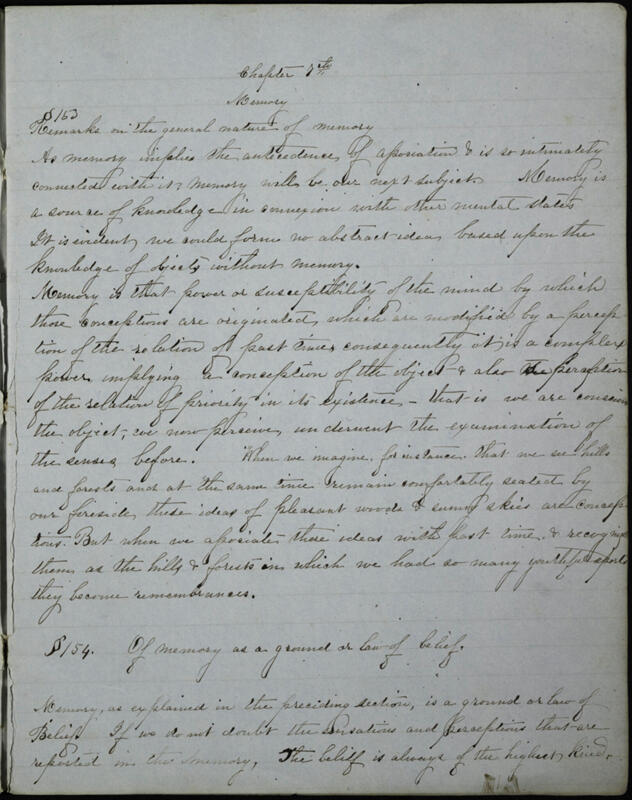 Chapter 7th
Memory
§153
Remarks on the general nature of memory
As memory implies the antecedence of association & is so intimately
connected with it, memory will be our next subject. Memory is
a source of knowledge in connexion with other mental states
It is evident we could form no abstract ideas based upon the
knowledge of objects without memory.
Memory is that power or susceptibility of the mind by which
those conceptions are originated, which are modified by a percep
tion of the relation of past time, consequently it is a complex
power, implying a conception of the object & also the perception
of the relation of priority in its existence – that is we are conscious
the object, we now perceive, underwent the examination of
the senses before. When we imagine, for instance, that we see hills
and forests and at the same time remain comfortably seated by
our fireside, these ideas of pleasant woods & sunny skies are concep
tions. But when we associate these ideas with past time, & recognize
them as the hills & forests in which we had so many youthful sports
they become remembrances.
§154. Of memory as a ground or law of belief.
Memory, as explained in the preciding section, is a ground or law of
Belief. If we do not doubt the sensations and perceptions that are
reported in the memory, The belief is always of the highest kind.